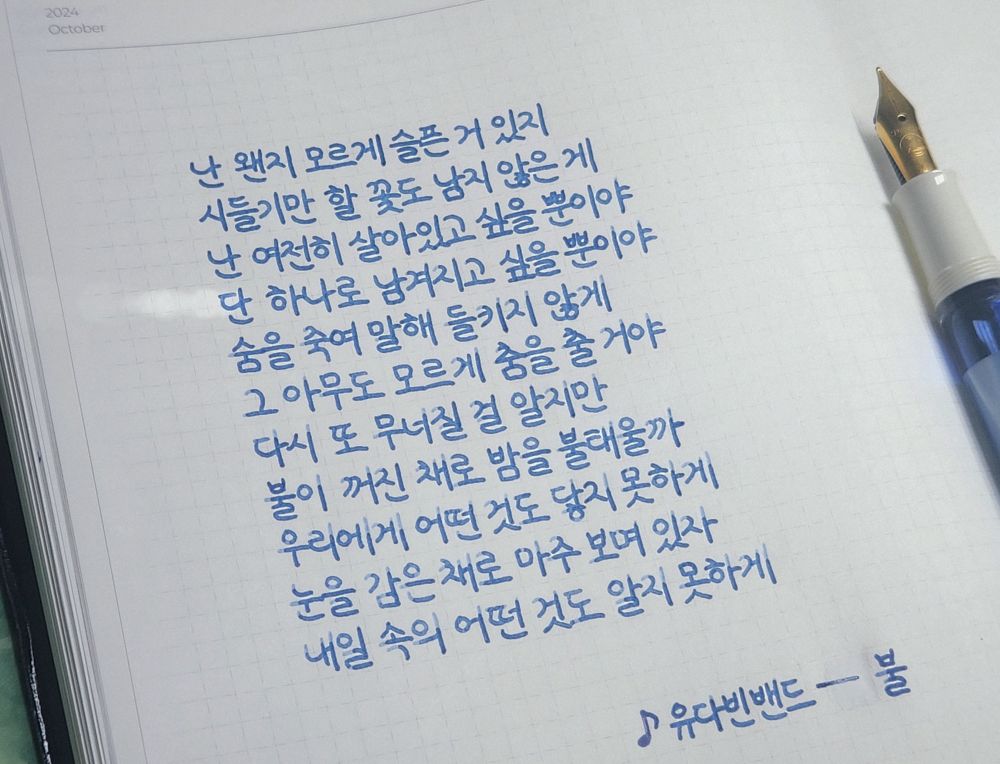 2024
October
난 왠지 모르게 슬픈 거 있지
시들기만 할 꽃도 남지 않은 게
난 여전히 살아있고 싶을 뿐이야
단 하나로 남겨지고 싶을 뿐이야
숨을 죽여 말해 들키지 않게
그 아무도 모르게 춤을 출 거야
다시 또 무너질 걸 알지만
불이 꺼진 채로 밤을 불태울까
우리에게 어떤 것도 닿지 못하게
눈을 감은 채로 마주 보며 있자
내일 속의 어떤 것도 알지 못하게
♪ 유다빈밴드 — 불